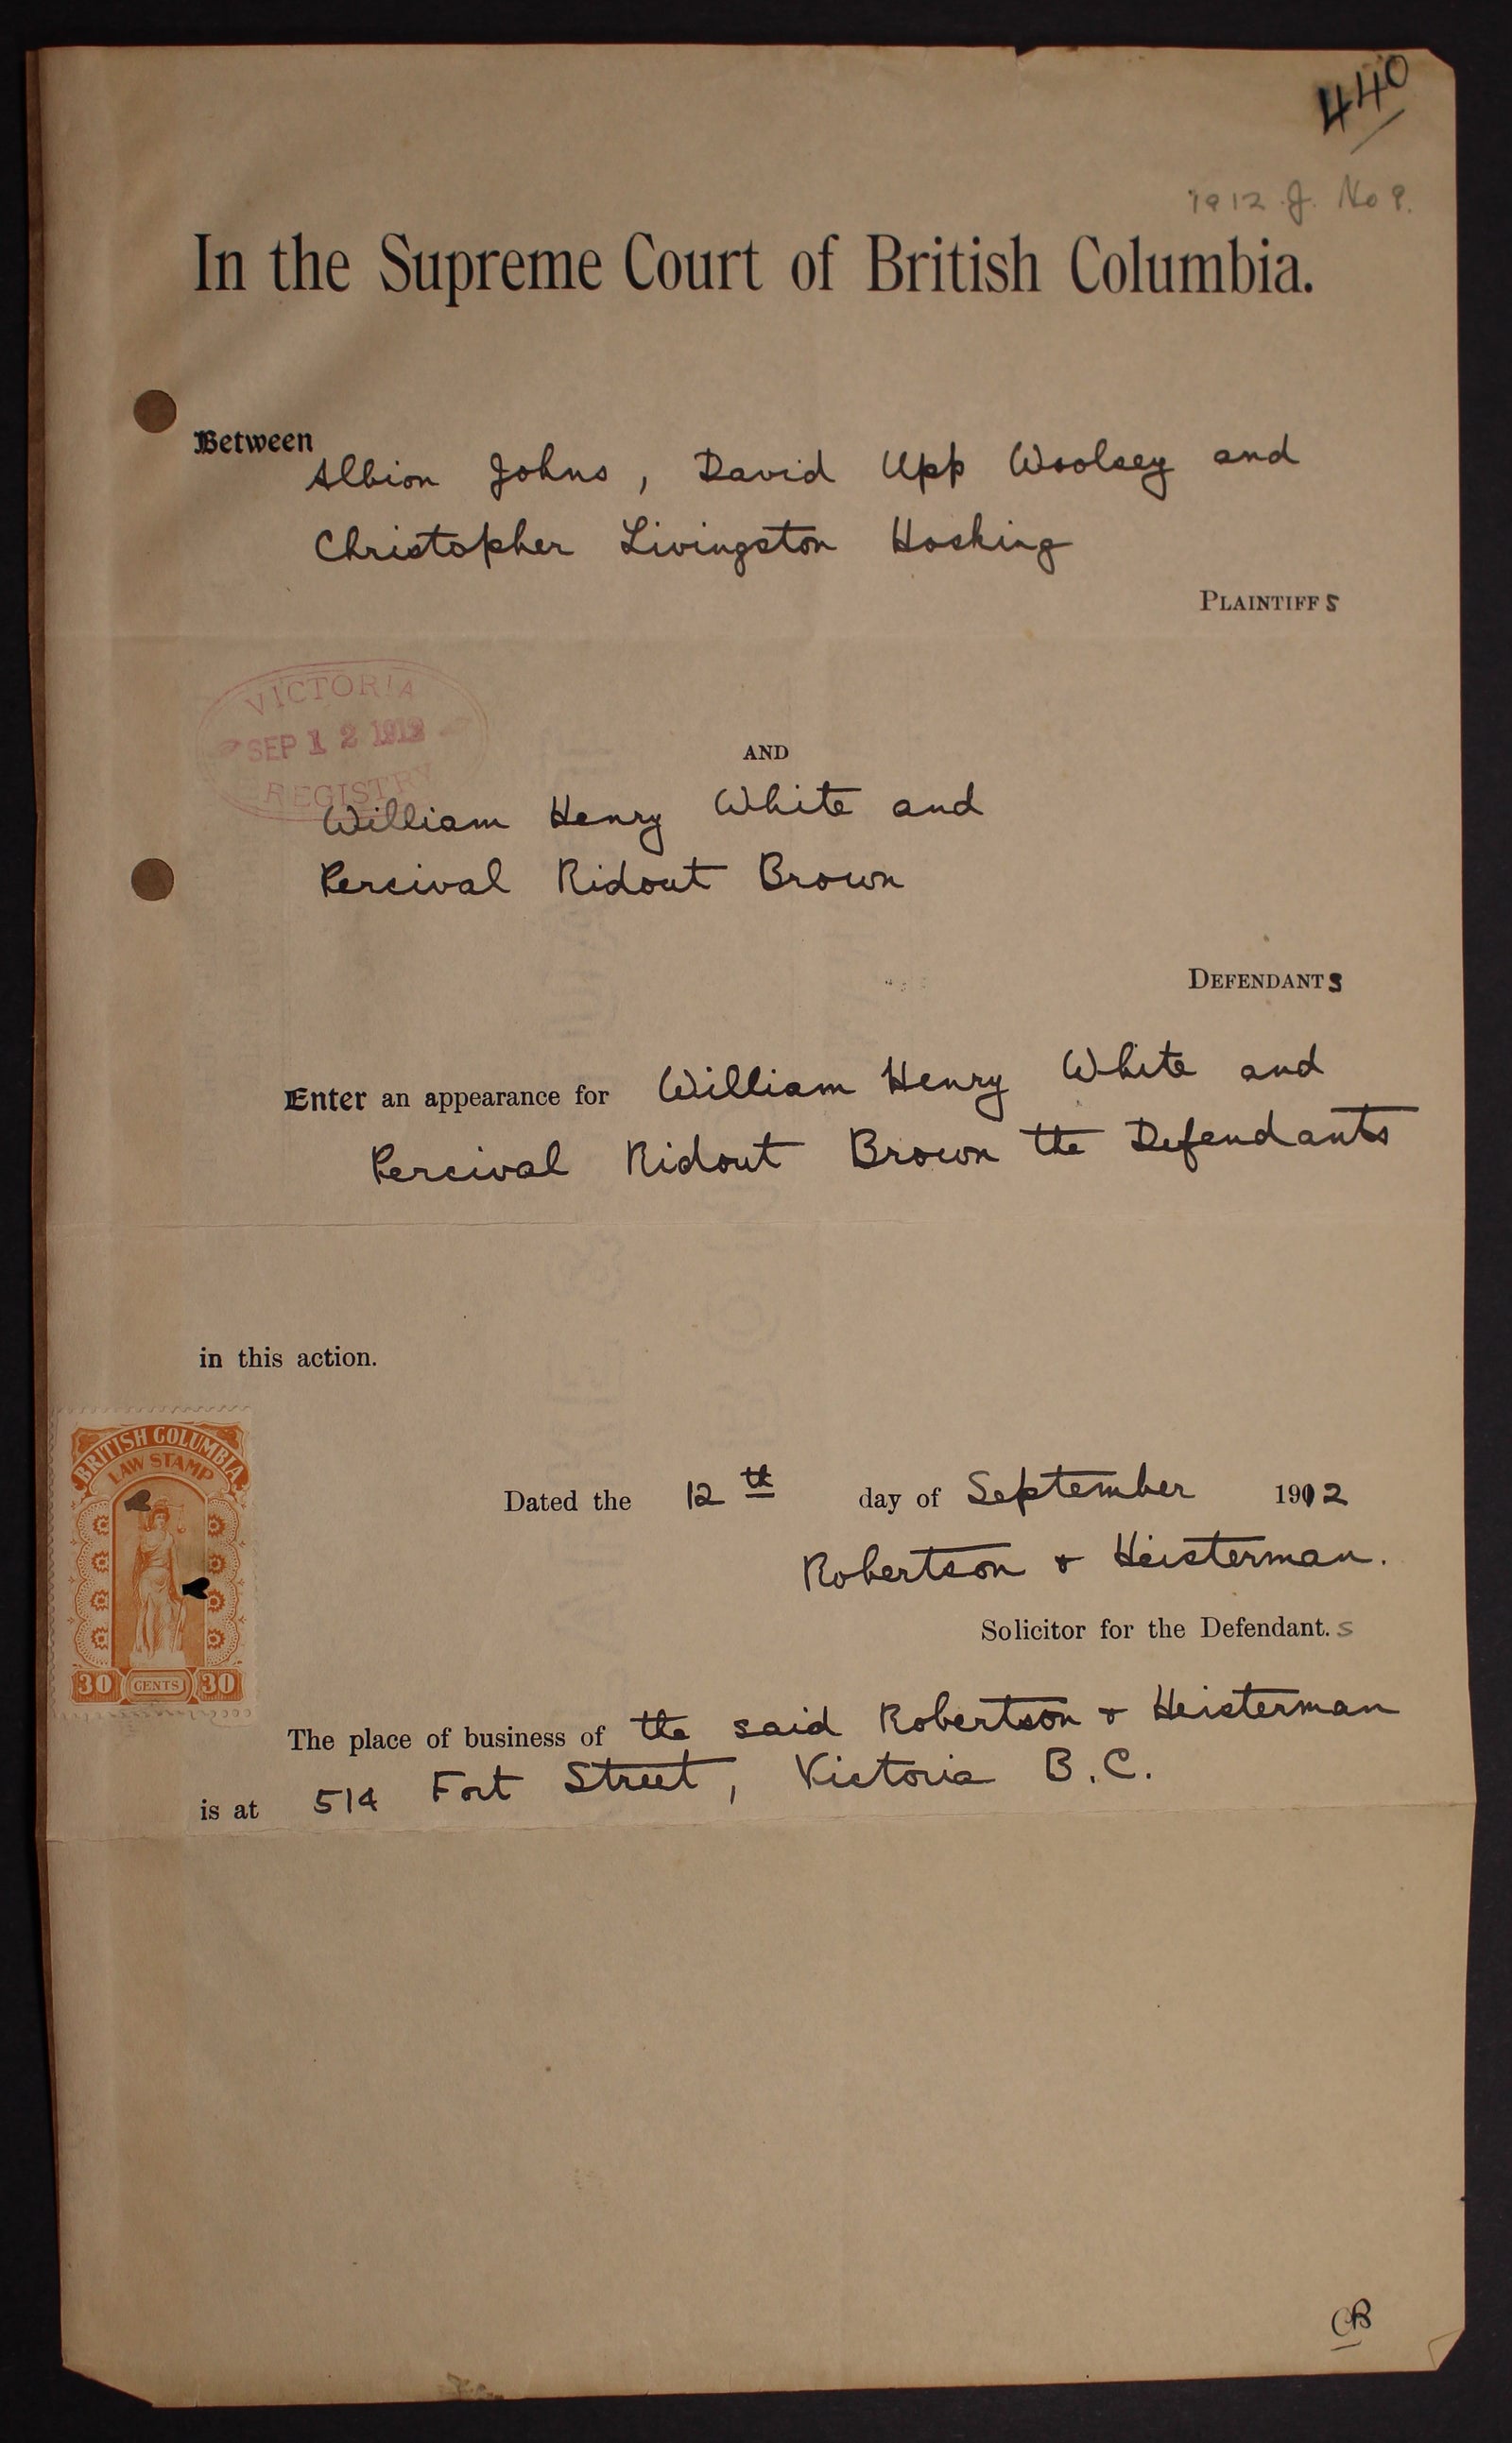 440
1912 J. No 9.
In the Supreme Court of British Columbia.
Between
Albion Johns, David Upp Woolsey and
Christopher Livingston Hosking
PLAINTIFFS
VICTORIA
SEP 12 1912
REGISTRY
AND
William Henry White and
Percival Ridout Brown
DEFENDANTS
Enter an appearance for William Henry White and
Percival Ridout Brown the Defendants
in this action.
BRITISH COLUMBIA
LAW STAMP
30 CENTS 30
Dated the 12th day of September 1912
Robertson & Heisterman.
Solicitor for the Defendant.s
The place of business of the said Robertson & Heisterman
is at 514 Fort Street, Victoria B.C.
CB